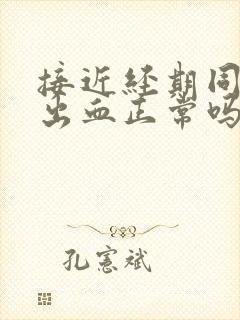 接近经期同
出血正常吗
孔宪斌